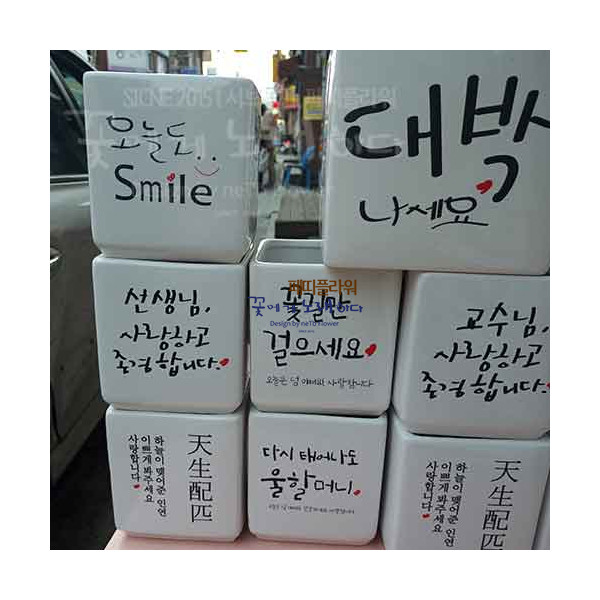 SICNE 2015 | 시
패피플라워
오늘도..
Smile
by ne10 flower
대박
나세요
선생님,
사랑하고
존경합니다.
패띠플라워
Design by ne10 Flower
꽃길만
걸으세요
오늘은 넘 이뻐요 사랑합니다
교수님,
사랑하고
존경합니다.
天生配匹
하늘이 맺어준 인연
이쁘게 봐주세요
사랑합니다
다시 태어나도
울할머니,
天生配匹
하늘이 맺어준 인연
이쁘게 봐주세요
사랑합니다